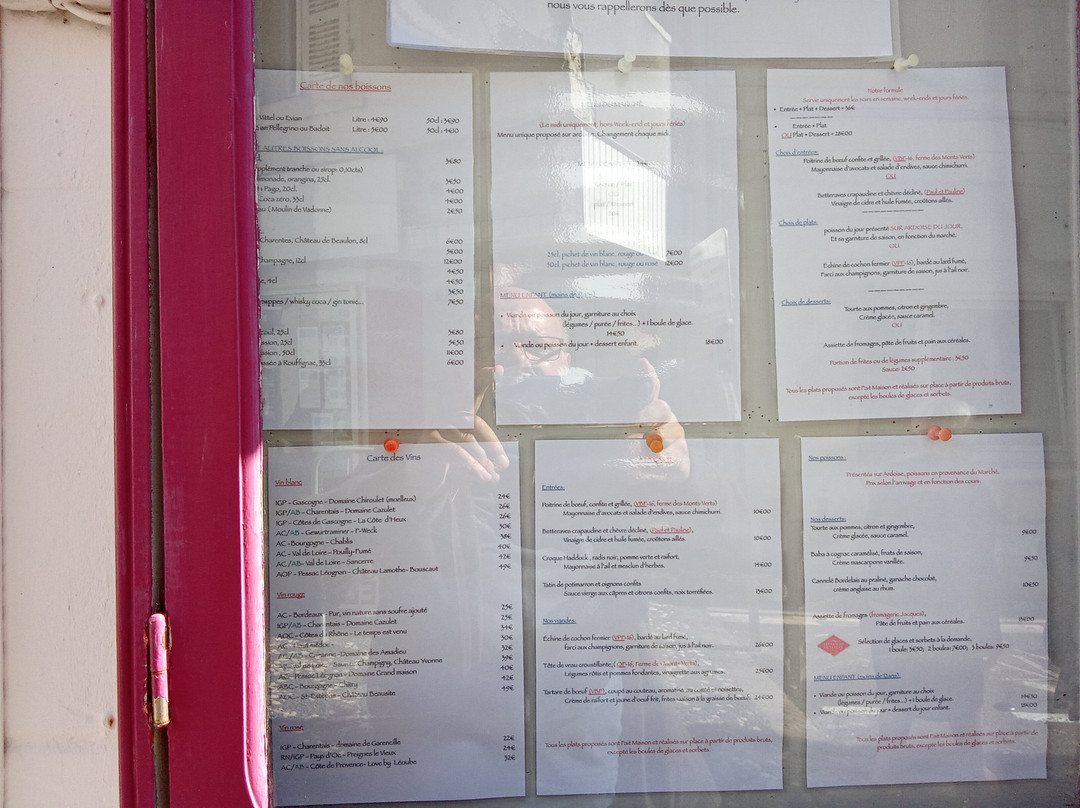 nous vous rappellerons dès que possible.
Carte de nos boissons
Vittel ou Evian Litre : 4€90 50cl : 3€90
San Pellegrino ou Badoit Litre : 5€00 50cl : 4€10
AUTRES BOISSONS SANS ALCOOL :
3€80
(supplément tranche ou sirop: 0,10cts)
limonade, orangina, 25cl. 3€50
Pago, 20cl. 4€00
Coca zéro, 33cl 4€00
( Moulin de Vadonne) 2€50
Charentes, Château de Beaulon, 8cl 6€00
5€00
Champagne, 12cl 12€00
4€50
4cl 4€50
3€50
/ whisky coca / gin tonic... 7€50
25cl 3€80
25cl 5€50
50cl 8€00
à Rouffignac, 33cl 6€00
(Le midi uniquement, hors Week-end et jours fériés)
Menu unique proposé sur Changment chaque midi.
25cl. pichet de vin blanc, rouge ou 7€00
50cl. pichet de vin blanc, rouge ou rosé 12€00
MENU ENFANT (moins de
• Viande ou poisson du jour, garniture au choix
(légumes / purée / frites...) + 1 boule de glace.
14€50
• Viande ou poisson du jour + dessert enfant. 18€00
Notre formule
Servie uniquement les soirs en semaine, week-ends et jours fériés.
• Entrée + Plat + Dessert = 36€
• Entrée + Plat
OU Plat + Dessert = 28€00
Choix d'entrées:
Poitrine de bœuf confite et grillée, (VBF-16, ferme des Monts Verts)
Mayonnaise d'avocats et salade d'endives, sauce chimichurri.
OU
Betteraves crapaudine et chèvre décliné, (Paul et Pauline)
Vinaigre de cidre et huile fumée, croûtons aillés.
Choix de plats:
poisson du jour présenté SUR ARDOISE DU JOUR,
Et sa garniture de saison, en fonction du marché.
OU
Échine de cochon fermier (VPF-16), bardé au lard fumé,
Farci aux champignons, garniture de saison, jus à l'ail noir.
Choix de desserts:
Tourte aux pommes, citron et gingembre,
Crème glacée, sauce caramel.
OU
Assiette de fromages, pâte de fruits et pain aux céréales.
Portion de frites ou de légumes supplémentaire : 3€50
Sauce: 1€50
Tous les plats proposés sont Fait Maison et réalisés sur place à partir de produits bruts,
excepté les boules de glaces et sorbets.
Carte des Vins
Vin blanc
IGP - Gascogne - Domaine Chiroulet (moelleux) 24€
IGP/AB - Charentais - Domaine Cazulet 26€
IGP - Côtes de Gascogne - La Côte d'Heux 26€
AC/AB - Gewurtraminer - F-Weck 30€
AC -Bourgogne - Chablis 38€
AC - Val de Loire - Pouilly-Fumé 40€
AC /AB - Val de Loire - Sancerre 42€
AOP - Pessac Léognan - Château Lamothe- Bouscaut 49€
Vin rouge
AC - Bordeaux - Pur, vin nature sans soufre ajouté 25€
IGP/AB - Charentais - Domaine Cazulet 25€
AOC - Côtes du Rhône - Le temps est venu 34€
30€
Domaine des Amadieu 32€
Champigny, Château Yvonne 39€
AC - Pessac Léognan - Domaine Grand maison 40€
42€
AOC - St-Estèphe - Château Beausite 49€
Vin rosé
IGP - Charentais - domaine de Garencille 22€
RN/IGP - Pays d'Oc - Preignes le Vieux 24€
AC/AB - Côte de Provence- Love by Léoube 32€
Entrées:
Poitrine de bœuf, confite et grillée, (VBF-16, ferme des Monts Verts)
Mayonnaise d'avocats et salade d'endives, sauce chimichurri. 10€00
Betteraves crapaudine et chèvre décliné, (Paul et Pauline),
Vinaigre de cidre et huile fumée, croûtons aillés. 10€00
Croque Haddock , radis noir, pomme verte et raifort,
Mayonnaise à l'ail et mesclun d'herbes. 14€00
Tatin de potimarron et oignons confits
Sauce vierge aux câpres et citrons confits, noix torréfiées. 13€00
Nos viandes:
Échine de cochon fermier (VPF-16), bardé au lard fumé,
farci aux champignons, garniture de saison, jus à l'ail noir. 26€00
Tête de veau croustillante,
Légumes rôtis et pommes fondantes, vinaigrette aux agrumes. 25€00
Tartare de bœuf (VBF), coupé au couteau, aromatisé et noisettes,
Crème de raifort et jaune d'œuf frit, frites maison à la graisse de bœuf. 24€00
Tous les plats proposés sont Fait Maison et réalisés sur place à partir de produits bruts,
excepté les boules de glaces et sorbets.
Nos poissons :
Présentés sur Ardoise, poissons en provenance du Marché,
Prix selon l'arrivage et en fonction des cours.
Nos desserts:
Tourte aux pommes, citron et gingembre,
Crème glacée, sauce caramel. 9€00
Baba à cognac caramélisé, fruits de saison,
Crème mascarpone vanillée. 9€50
Cannelé Bordelais au praliné, ganache chocolat,
crème anglaise au rhum. 10€50
Assiette de fromages (fromagerie Jacques),
Pâte de fruits et pain aux céréales. 13€00
Sélection de glaces et sorbets à la demande,
1 boule 3€50; 2 boules 7€00; 3 boules 9€50
MENU ENFANT (moins de 12ans):
• Viande ou poisson du jour, garniture au choix
(légumes / purée / frites...) + 1 boule de glace. 14€50
• Viande ou poisson du jour + dessert enfant. 18€00
Tous les plats proposés sont Fait Maison et réalisés sur place à partir de
produits bruts, excepté les boules de glaces et sorbets.